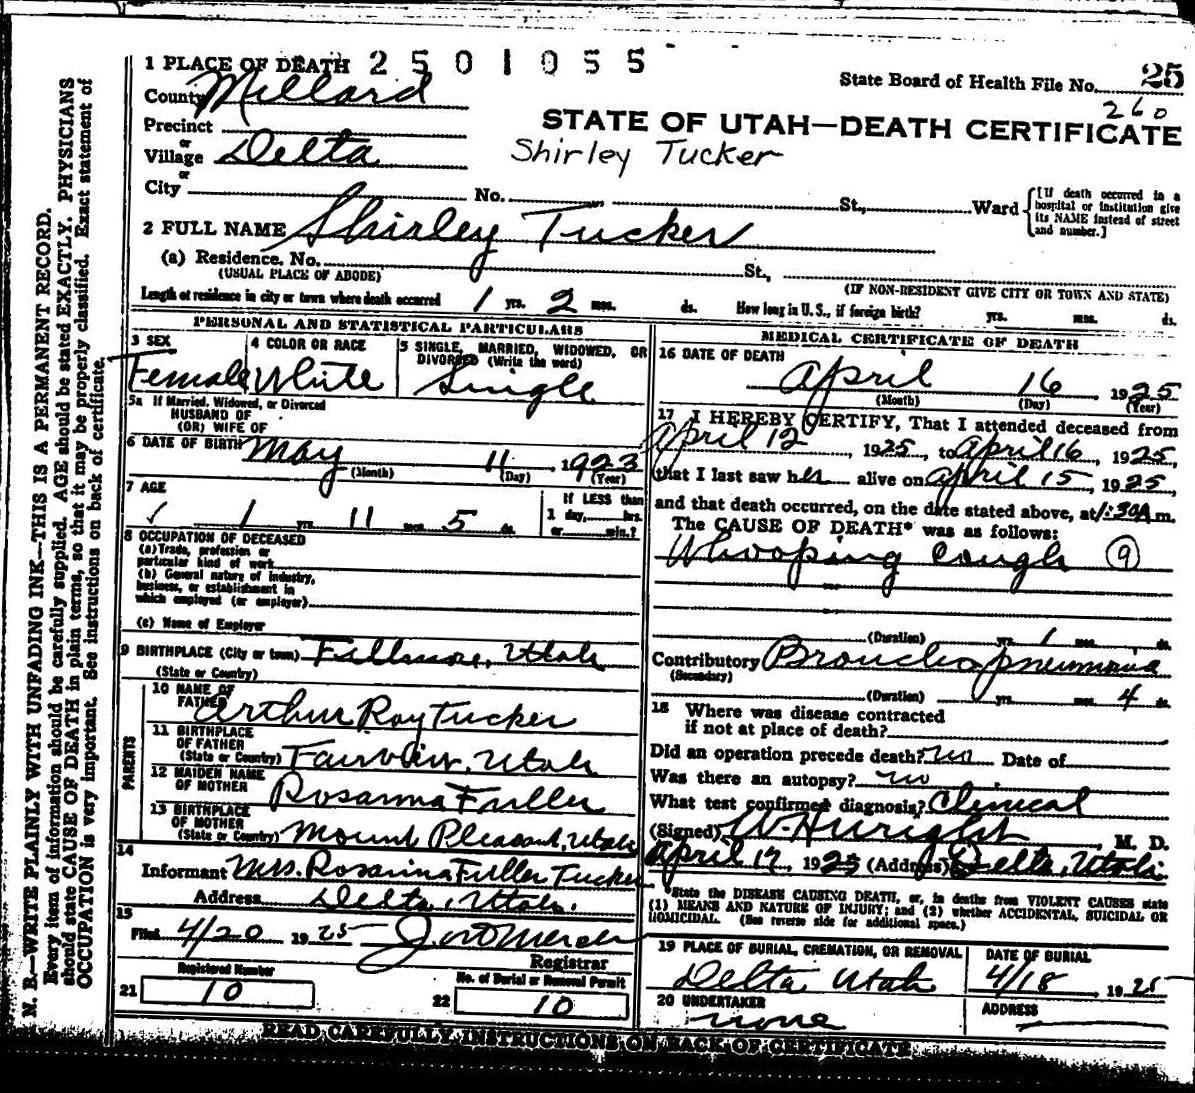 1 PLACE OF DEATH 2501055
State Board of Health File No. 25
260
County Millard
STATE OF UTAH—DEATH CERTIFICATE
Precinct
or
Village Delta
Shirley Tucker
or
City No. St., Ward [If death occurred in a hospital or institution give its NAME instead of street and number.]
2 FULL NAME Shirley Tucker
(a) Residence. No. St.,
(USUAL PLACE OF ABODE) (IF NON-RESIDENT GIVE CITY OR TOWN AND STATE)
Length of residence in city or town where death occurred 1 yrs. 2 mos. ds. How long in U. S., if foreign birth? yrs. mos. ds.
PERSONAL AND STATISTICAL PARTICULARS
3 SEX
Female
4 COLOR OR RACE
White
5 SINGLE, MARRIED, WIDOWED, OR
DIVORCED (Write the word)
Single
5a If Married, Widowed, or Divorced
HUSBAND OF
(OR) WIFE OF
6 DATE OF BIRTH May 11, 1923
(Month) (Day) (Year)
7 AGE
1 yrs. 11 mos. 5 ds.
If LESS than
1 day, hrs.
or min.?
8 OCCUPATION OF DECEASED
(a) Trade, profession or
particular kind of work
(b) General nature of industry,
business, or establishment in
which employed (or employer)
(c) Name of Employer
9 BIRTHPLACE (City or town) Fillmore, Utah
(State or Country)
PARENTS
10 NAME OF
FATHER Arthur Roy Tucker
11 BIRTHPLACE
OF FATHER
(State or Country) Fairview, Utah
12 MAIDEN NAME
OF MOTHER Rosanna Fuller
13 BIRTHPLACE
OF MOTHER
(State or Country) Mount Pleasant, Utah
14
Informant Mrs. Rosanna Fuller Tucker
Address Delta, Utah.
15
Filed 4/20 1925
Registrar
21 Registered Number
10
22 No. of Burial or Removal Permit
10
MEDICAL CERTIFICATE OF DEATH
16 DATE OF DEATH
April 16, 1925
(Month) (Day) (Year)
17 I HEREBY CERTIFY, That I attended deceased from
April 12, 1925, to April 16, 1925,
that I last saw her alive on April 15, 1925,
and that death occurred, on the date stated above, at 1:30A m.
The CAUSE OF DEATH* was as follows:
Whooping Cough 9
(Duration) yrs. 1 mos. ds.
Contributory Broncho pneumonia
(Secondary)
(Duration) yrs. mos. 4 ds.
18 Where was disease contracted
if not at place of death?
Did an operation precede death? no Date of
Was there an autopsy? no
What test confirmed diagnosis? Clinical
(Signed) W. H. Wright M. D.
April 17, 1925 (Address) Delta, Utah.
*State the DISEASE CAUSING DEATH, or, in deaths from VIOLENT CAUSES state
(1) MEANS AND NATURE OF INJURY; and (2) whether ACCIDENTAL, SUICIDAL OR
HOMICIDAL. (See reverse side for additional space.)
19 PLACE OF BURIAL, CREMATION, OR REMOVAL
Delta Utah
DATE OF BURIAL
4/18, 1925
20 UNDERTAKER
none
ADDRESS
READ CAREFULLY INSTRUCTIONS ON BACK OF CERTIFICATE
N. B.—WRITE PLAINLY WITH UNFADING INK—THIS IS A PERMANENT RECORD.
Every item of information should be carefully supplied. AGE should be stated EXACTLY. PHYSICIANS
should state CAUSE OF DEATH in plain terms, so that it may be properly classified. Exact statement of
OCCUPATION is very important. See instructions on back of certificate.